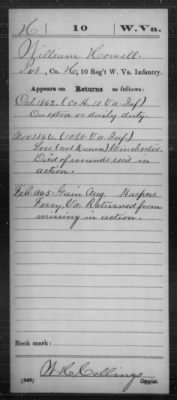 H 10 W.Va.
William Howell
Pvt., Co. H, 10 Reg't W. Va. Infantry.
Appears on Returns as follows:
Oct 1862. (Co H. 10 Va. Inf)
On extra or daily duty.
Nov 1864 (10th Va. Inf)
Loss Winchester.
Died of wounds recd in
action.
Feb 1865. Gain Aug Harpers
Ferry Va. Returned from
missing in action.
Book mark:
W. H. Collings
(546) Copyist.